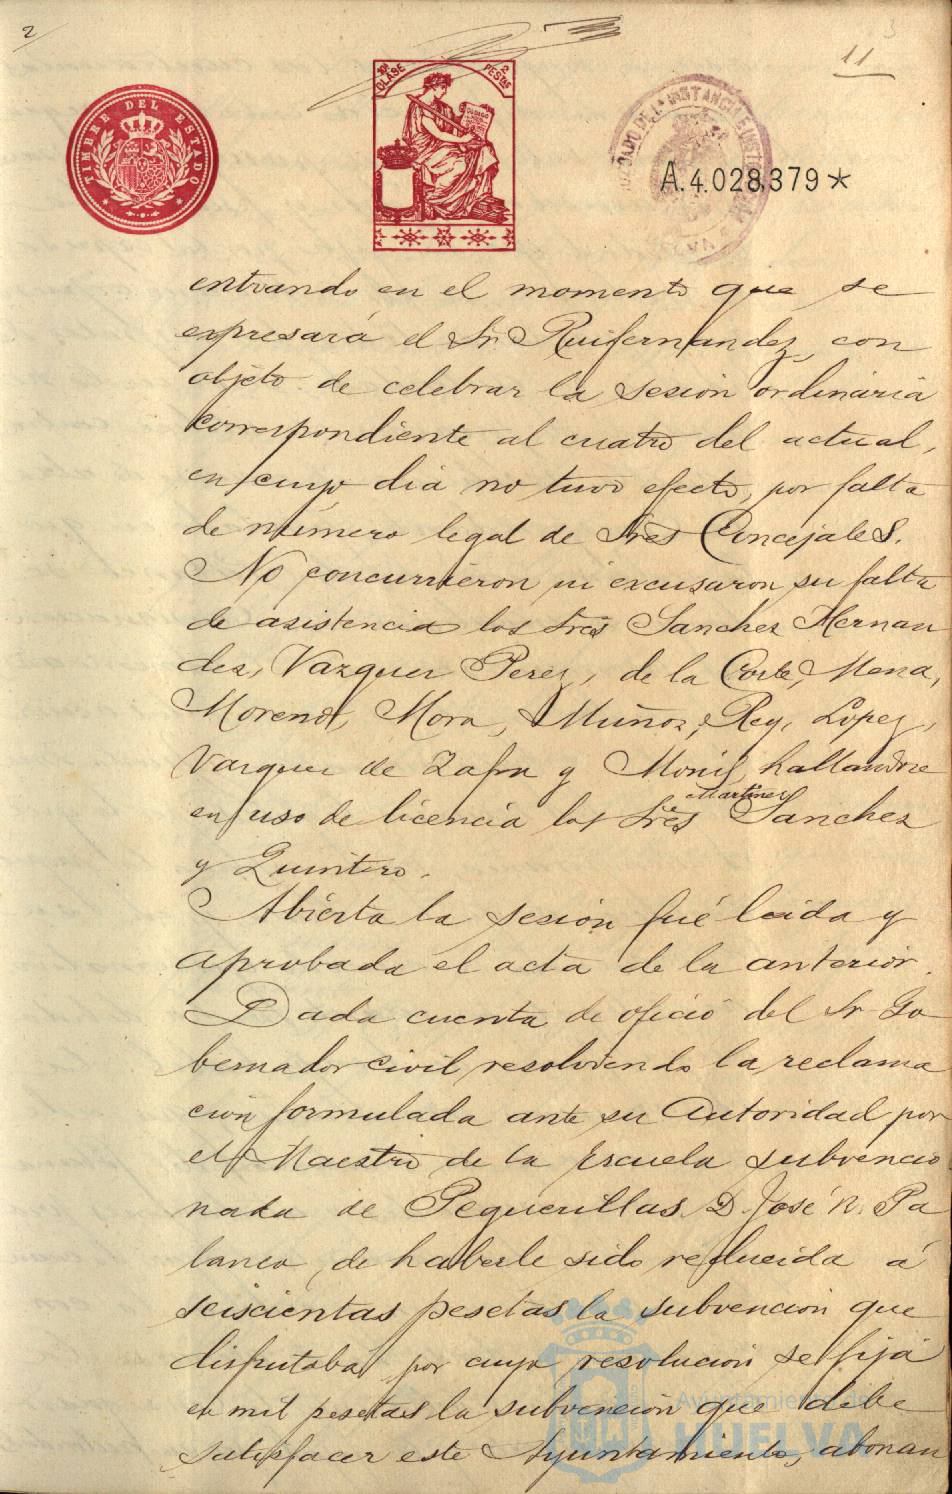 2
11
TIMBRE DEL ESTADO
10ª CLASE
2 PESTAS
A.4.028,379*
entrando en el momento que se
expresará el Sr. Ruifernandez, con
objeto de celebrar la sesión ordinaria
correspondiente al cuatro del actual,
en cuyo dia no tuvo efecto, por falta
de número legal de Sres Concejales.
No concurrieron ni excusaron su falta
de asistencia los Sres Sanchez Hernan
dez, Vazquez Perez, de la Corte, Mena,
Moreno, Mora, Muñoz, Rey, Lopez,
Vazquez de Zafra y Monis, hallandose
en uso de licencia los Sres Martinez Sanchez
y Quintero.
Abierta la sesión fué leida y
aprobada el acta de la anterior.
Dada cuenta de oficio del Sr Go
bernador civil resolviendo la reclama
ción formulada ante su Autoridad por
el Maestro de la Escuela subvencio
nada de Peguerillas D. José N. Pa
lanco, de haberle sido reducida á
seiscientas pesetas la subvencion que
disfrutaba, por cuya resolucion se fija
en mil pesetas la subvención que debe
satisfacer este Ayuntamiento, abonan
Ayuntamiento de
HUELVA